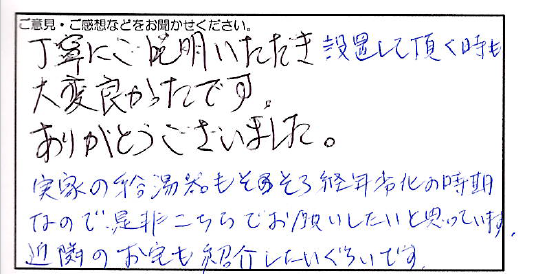 ご意見・ご感想などをお聞かせください。
丁寧にご説明いただき 設置して頂く時も
大変良かったです。
ありがとうございました。
実家の給湯器もそろそろ経年劣化の時期
なので是非こちらでお願いしたいと思っています。
近隣のお宅も紹介したいぐらいです。